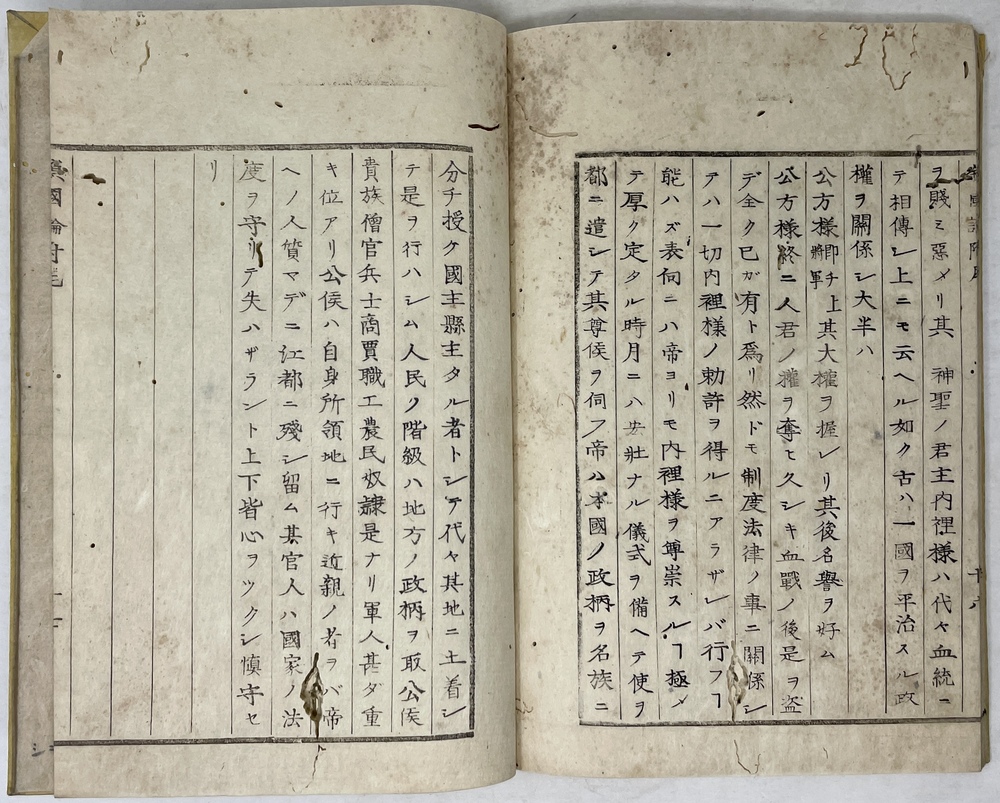 ヲ賤ミ惡メリ其　神聖ノ君主内裡様ハ代々血統ニ
テ相傳シ上ニモ云ヘル如ク古ハ一國ヲ平治スル政
權ヲ關係シ大半ハ
公方様即チ將軍上其大權ヲ握レリ其後名譽ヲ好ム
公方様終ニ人君ノ權ヲ奪ヒ久シキ血戰ノ後是ヲ盗
デ全ク已ガ有ト爲リ然ドモ制度法律ノ事ニ關係シ
テハ一切内裡様ノ勅許ヲ得ルニアラザレバ行フヿ
能ハズ表向ニハ帝ヨリモ内裡様ヲ尊崇スルヿ極メ
テ厚ク定タル時月ニハ壮ナル儀式ヲ備ヘテ使ヲ
都ニ遣シテ其尊候ヲ伺フ帝ハ本國ノ政柄ヲ名族ニ
分チ授ク國主縣主タル者トシテ代々其地ニ土着シ
テ是ヲ行ハシム人民ノ階級ハ地方ノ政柄ヲ取公侯
貴族僧官兵士商賈職工農民奴隷是ナリ軍人甚ダ重
キ位アリ公侯ハ自身所領地ニ行キ近親ノ者ヲバ帝
ヘノ人質マデニ江都ニ殘シ留ム其官人ハ國家ノ法
度ヲ守リテ失ハザラント上下皆心ヲツクシ慎守セ
リ